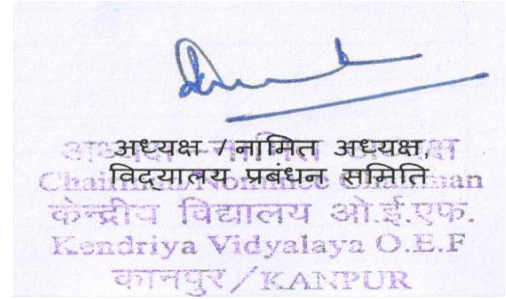 अध्यक्ष /नामित अध्यक्ष,
विद्यालय प्रबंधन समिति
Chairman/Nominee Chairman
केन्द्रीय विद्यालय ओ.ई.एफ.
Kendriya Vidyalaya O.E.F
कानपुर/KANPUR